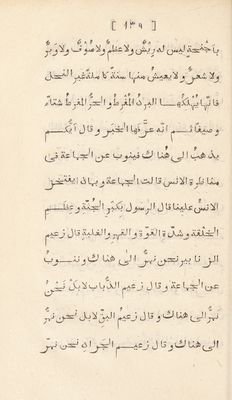 [ ١٣٩ ]
باجنحة ليس له ريش ولا عظم ولا صوف ولا وبر
ولا شعر ولا يعيش منها سنة كاملة غير النحل
فانها يهلكها البرد المفرط والحر المفرط شتاء
وصيفا ثم انه عرّفها الخبر وقال ايكم
يذهب الى هناك فينوب عن الجماعة فى
مناظرة الانس قالت الجماعة وبماذا يفتخر
الانس علينا قال الرسول بكبر الجثة وعظم
الخلقة وشدّة القوة والقهر والغلبة قال زعيم
الزنابير نحن نمرّ الى هناك وننوب
عن الجماعة وقال زعيم الذباب لا بل نحن
نمرّ الى هناك وقال زعيم البقّ لا بل نحن نمرّ
الى هناك وقال زعيم الجراد نحن نمرّ